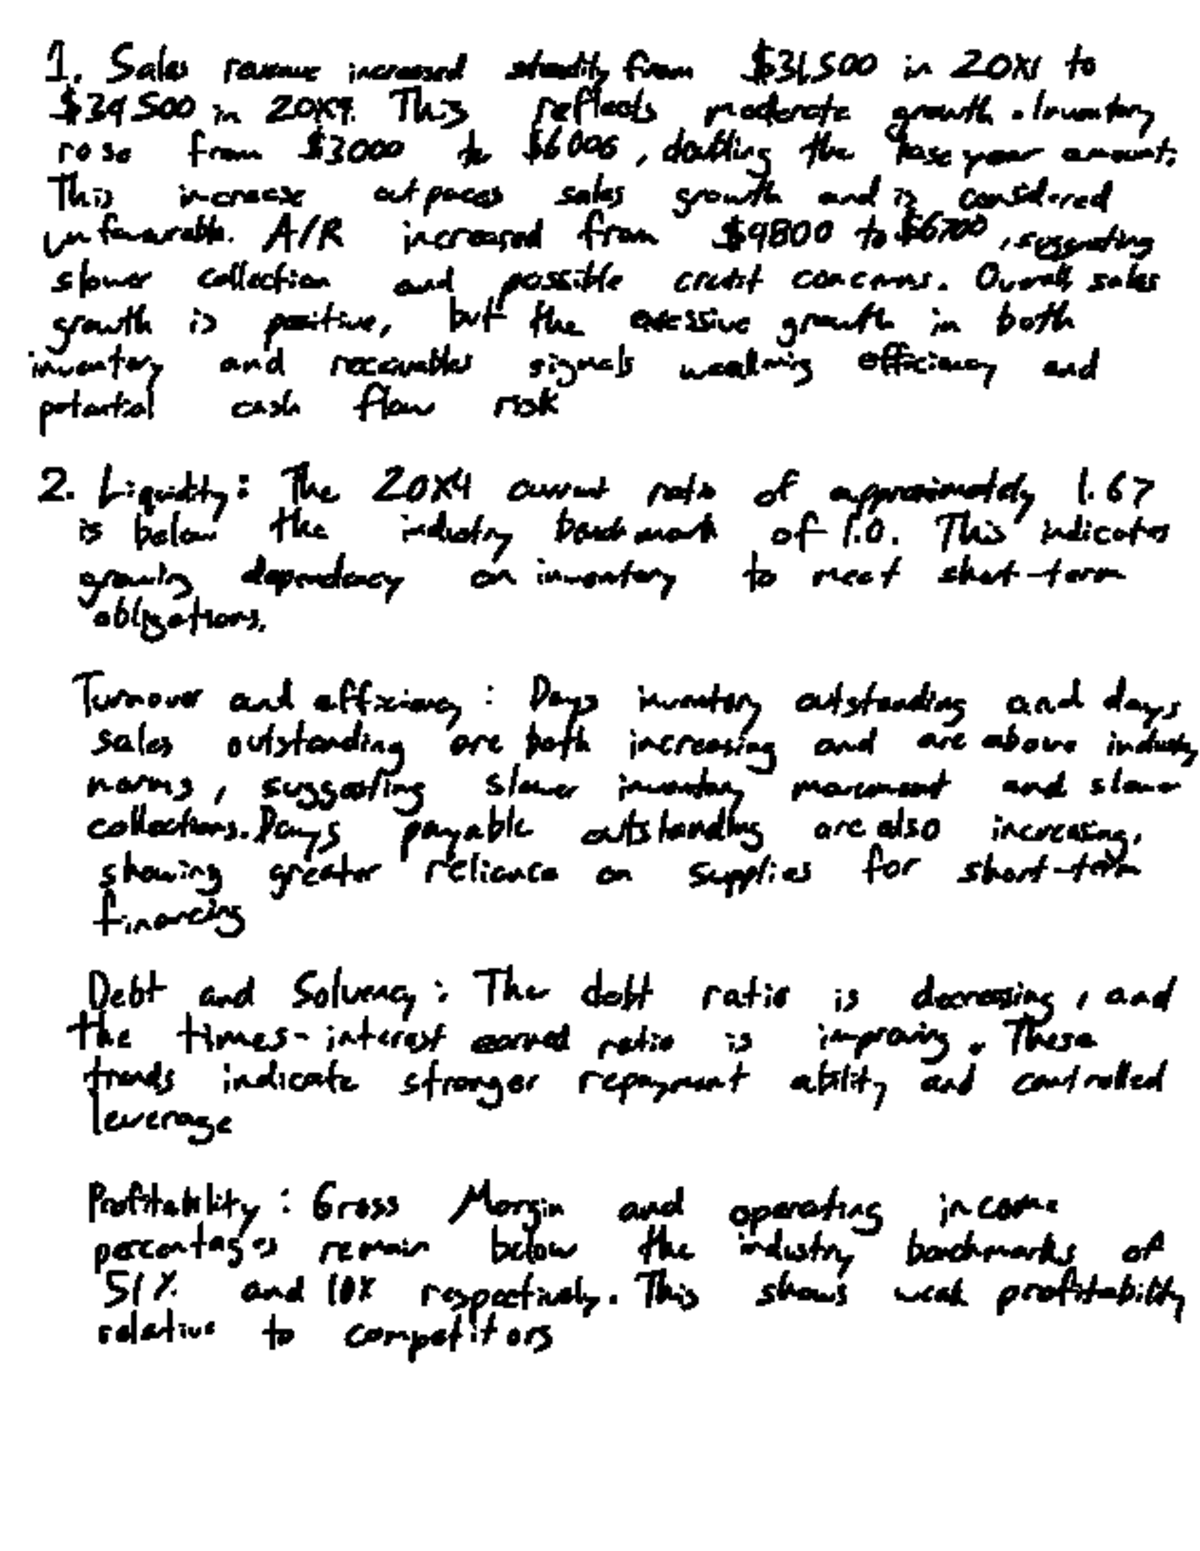 1. Sales revenue increased steadily from $31,500 in 20X1 to
$39,500 in 20X4. This reflects moderate growth. Inventory
rose from $3000 to $6006, doubling the base year amount.
This increase outpaces sales growth and is considered
unfavourable. A/R increased from $9800 to $6700, suggesting
slower collection and possible credit concerns. Overall, sales
growth is positive, but the excessive growth in both
inventory and receivables signals weakening efficiency and
potential cash flow risk
2. Liquidity: The 20X4 current ratio of approximately 1.67
is below the industry benchmark of 1.0. This indicates
growing dependency on inventory to meet short-term
obligations.
Turnover and efficiency: Days inventory outstanding and days
sales outstanding are both increasing and are above industry
norms, suggesting slower inventory movement and slower
collections. Days payable outstanding are also increasing,
showing greater reliance on supplies for short-term
financing
Debt and Solvency: The debt ratio is decreasing, and
the times-interest earned ratio is improving. These
trends indicate stronger repayment ability and controlled
leverage
Profitability: Gross Margin and operating income
percentages remain below the industry benchmarks of
51% and 10% respectively. This shows weak profitability
relative to competitors